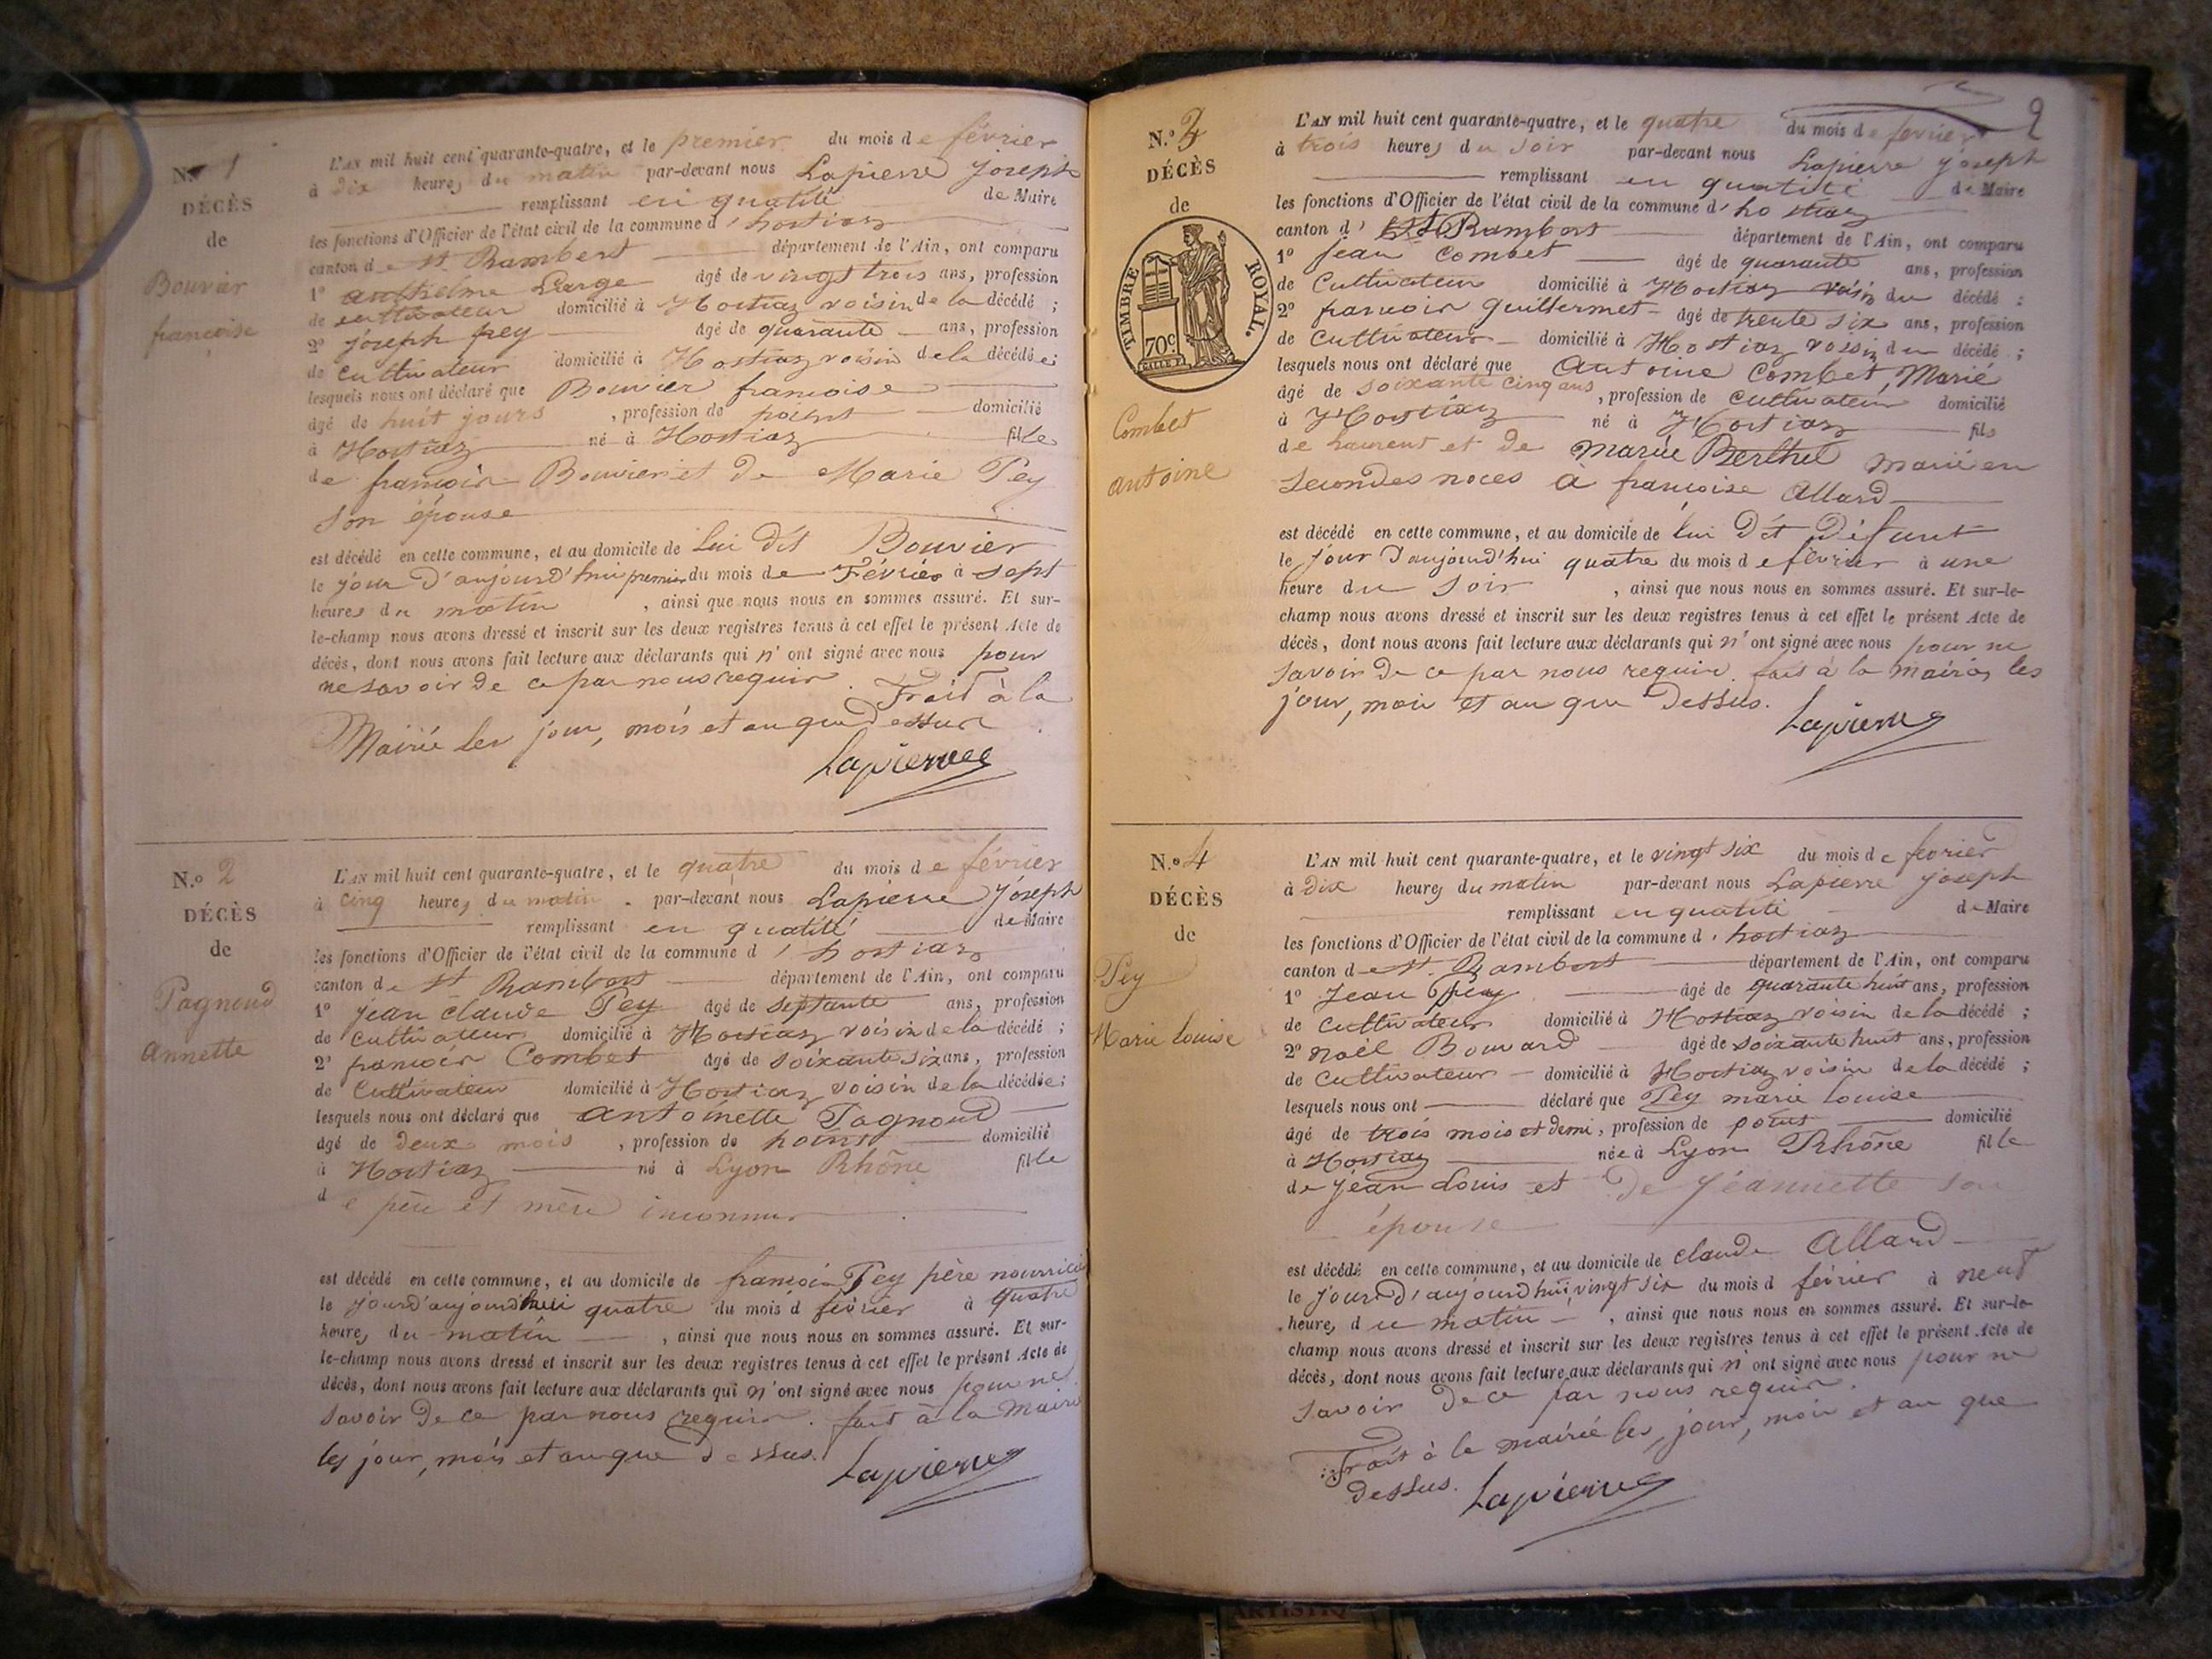 N.o 1
DÉCÈS
de
Bouvier
françoise
L'AN mil huit cent quarante-quatre, et le premier du mois de février
à dix heures du matin par-devant nous Lapierre joseph
remplissant en qualité de Maire
les fonctions d'Officier de l'état civil de la commune d'hostiaz
canton de St. Rambert département de l'Ain, ont comparu
1º anthelme Large âgé de vingt trois ans, profession
de cultivateur domicilié à Hostiaz voisin de la décédé ;
2º joseph pey âgé de quarante ans, profession
de cultivateur domicilié à Hostiaz voisin de la décédée;
lesquels nous ont déclaré que Bouvier françoise
âgé de huit jours , profession de point domicilié
à Hostiaz né à Hostiaz fille
de françois Bouvier et de Marie Pey
son épouse
est décédé en cette commune, et au domicile de lui dit Bouvier
le jour d'aujourd'hui premier du mois de Février à sept
heures du matin , ainsi que nous nous en sommes assuré. Et sur-
le-champ nous avons dressé et inscrit sur les deux registres tenus à cet effet le présent Acte de
décès, dont nous avons fait lecture aux déclarants qui n'ont signé avec nous pour
ne savoir de ce par nous requis. Fait à la
Mairie les jour, mois et an que dessus
Lapierre
N.o 2
DÉCÈS
de
Pagnoud
Annette
L'AN mil huit cent quarante-quatre, et le quatre du mois de février
à cinq heures du matin par-devant nous Lapierre joseph
remplissant en qualité de Maire
les fonctions d'Officier de l'état civil de la commune d'hostiaz
canton de St Rambert département de l'Ain, ont comparu
1º jean claude Pey âgé de septante ans, profession
de cultivateur domicilié à Hostiaz voisin de la décédé ;
2º françois Combet âgé de soixante six ans, profession
de Cultivateur domicilié à Hostiaz voisin de la décédée;
lesquels nous ont déclaré que antoinette Pagnoud
âgé de deux mois , profession de point domicilié
à Hostiaz né à Lyon Rhône fille
de père et mère inconnus
est décédé en cette commune, et au domicile de françois Pey père nourricier
le jourd'aujourd'hui quatre du mois d février à quatre
heures du matin , ainsi que nous nous en sommes assuré. Et sur-
le-champ nous avons dressé et inscrit sur les deux registres tenus à cet effet le présent Acte de
décès, dont nous avons fait lecture aux déclarants qui n'ont signé avec nous pour ne
savoir de ce par nous requis. fait à la Mairie
les jour, mois et an que dessus.
Lapierre
2
N.o 3
DÉCÈS
de
TIMBRE ROYAL.
70c
Combet
antoine
L'AN mil huit cent quarante-quatre, et le quatre du mois de fevrier
à trois heures du soir par-devant nous Lapierre joseph
remplissant en qualité de Maire
les fonctions d'Officier de l'état civil de la commune d'hostiaz
canton d' St Rambert département de l'Ain, ont comparu
1º jean Combet âgé de quarante ans, profession
de Cultivateur domicilié à Hostiaz voisin du décédé ;
2º françois guillermet âgé de trente six ans, profession
de Cultivateur domicilié à Hostiaz voisin du décédé ;
lesquels nous ont déclaré que Antoine Combet, Marié
âgé de soixante cinq ans , profession de cultivateur domicilié
à Hostiaz né à Hostiaz fils
de Laurent et de Marie Berthet marié en
secondes noces à françoise Allard
est décédé en cette commune, et au domicile de lui dit Défunt
le jour d'aujourd'hui quatre du mois de février à une
heure du soir , ainsi que nous nous en sommes assuré. Et sur-le-
champ nous avons dressé et inscrit sur les deux registres tenus à cet effet le présent Acte de
décès, dont nous avons fait lecture aux déclarants qui n'ont signé avec nous pour ne
savoir de ce par nous requis. fait à la mairie, les
jour, mois et an que dessus.
Lapierre
N.o 4
DÉCÈS
de
Pey
Marie louise
L'AN mil huit cent quarante-quatre, et le vingt six du mois de fevrier
à dix heures du matin par-devant nous Lapierre joseph
remplissant en qualité de Maire
les fonctions d'Officier de l'état civil de la commune d'hostiaz
canton de St. Rambert département de l'Ain, ont comparu
1º Jean pey âgé de quarante huit ans, profession
de cultivateur domicilié à Hostiaz voisin de la décédé ;
2º noël Bouvard âgé de soixante huit ans, profession
de cultivateur domicilié à Hostiaz voisin de la décédé ;
lesquels nous ont déclaré que Pey marie louise
âgé de trois mois et demi, profession de point domicilié
à Hostiaz née à Lyon Rhône fille
de jean Louis et de jéannette son
épouse
est décédé en cette commune, et au domicile de claude Allard
le jour d'aujourd'hui vingt six du mois d février à neuf
heures du matin , ainsi que nous nous en sommes assuré. Et sur-le-
champ nous avons dressé et inscrit sur les deux registres tenus à cet effet le présent Acte de
décès, dont nous avons fait lecture aux déclarants qui n'ont signé avec nous pour ne
savoir de ce par nous requis.
Fait à la mairie les jour, mois et an que
dessus. Lapierre